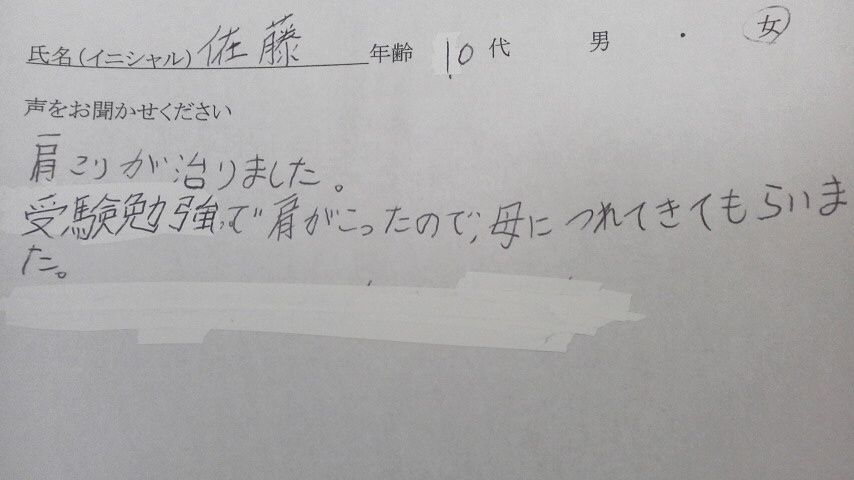 氏名(イニシャル) 佐藤 年齢 10代 男 ・ 女
声をお聞かせください
肩こりが治りました。
受験勉強で肩がこったので、母につれてきてもらいま
た。